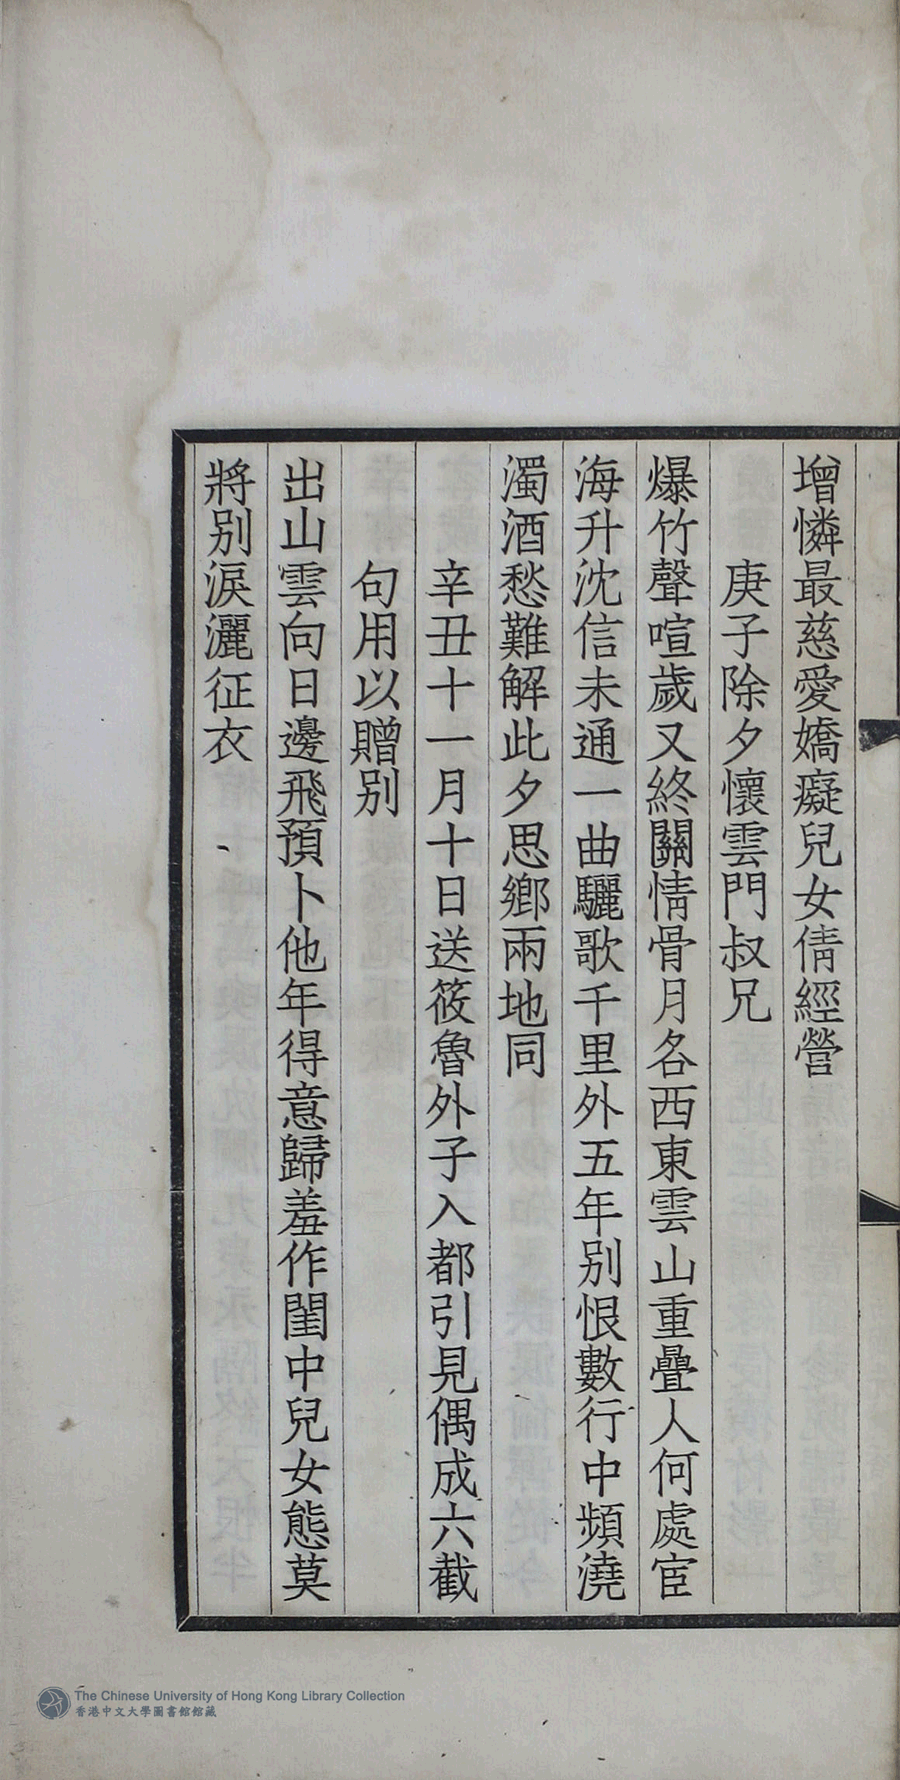 增憐最慈愛嬌癡兒女倩經營
庚子除夕懷雲門叔兄
爆竹聲喧歲又終關情骨月各西東雲山重疊人何處宦
海升沈信未通一曲驪歌千里外五年别恨數行中頻澆
濁酒愁難解此夕思鄉兩地同
辛丑十一月十日送筱魯外子入都引見偶成六截
句用以贈别
出山雲向日邊飛預卜他年得意歸羞作閨中兒女態莫
將别淚灑征衣
The Chinese University of Hong Kong Library Collection
香港中文大學圖書館館藏